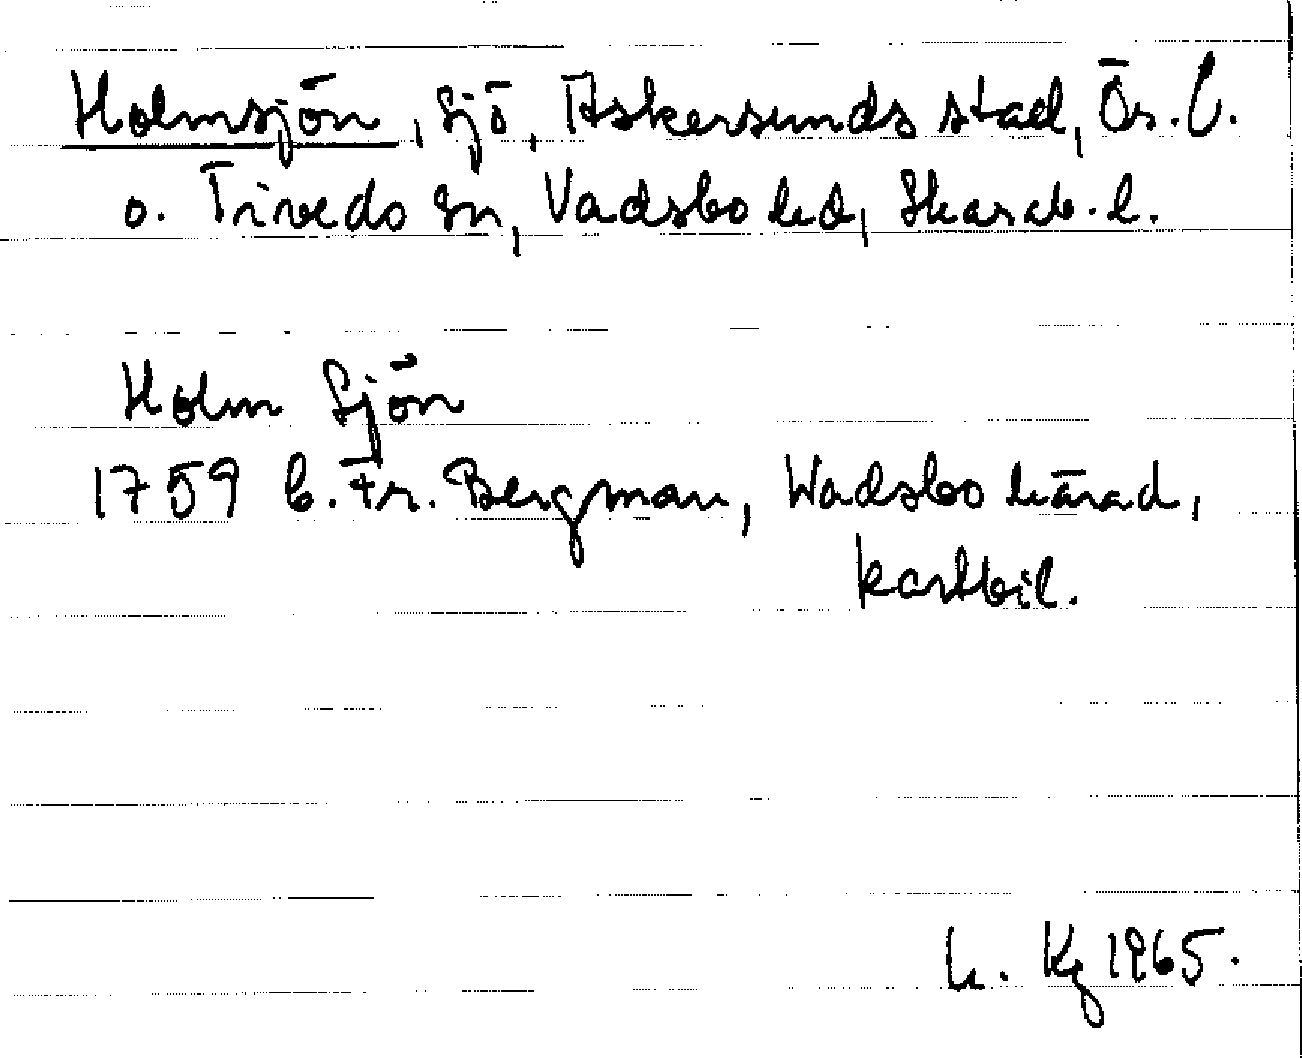 Holmsjön, sjö, Askersunds stad, Ör. l.
o. Tiveds sn, Vadsbo hd, Skarab. l.
Holm Sjön
1759 C. Fr. Bergman, Wadsbo härad,
kartbil.
1965.